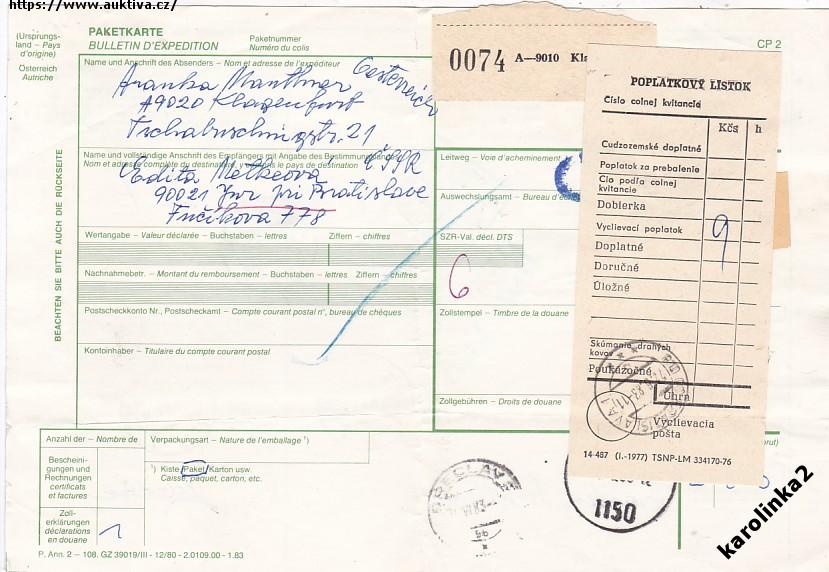 https://www.auktiva.cz/
(Ursprungs-
land – Pays
d'origine)
Österreich
Autriche
PAKETKARTE
BULLETIN D'EXPEDITION
Paketnummer
Numéro du colis
0074 A—9010 Kla
CP 2
Name und Anschrift des Absenders – Nom et adresse de l'expéditeur
Aranka Manthner
A9020 Klagenfurt
Name und vollständige Anschrift des Empfängers mit Angabe des Bestimmungslandes
Nom et adresse complète du destinataire, y compris le pays de destination
ČSSR
Edita
90021 Jvr pri Bratislave
Fučíkova 778
BEACHTEN SIE BITTE AUCH DIE RÜCKSEITE
Leitweg – Voie d'acheminement
Auswechslungsamt – Bureau d'é
Wertangabe – Valeur déclarée – Buchstaben – lettres
Ziffern – chiffres
SZR-Val. décl. DTS
Nachnahmebetr. – Montant du remboursement – Buchstaben – lettres
Ziffern – chiffres
6
Postscheckkonto Nr., Postscheckamt – Compte courant postal n°, bureau de chèques
Zollstempel – Timbre de la douane
Kontoinhaber – Titulaire du compte courant postal
Zollgebühren – Droits de douane
POPLATKOVÝ LÍSTOK
Číslo colnej kvitancie
Kčs h
Cudzozemské doplatné
Poplatok za prebalenie
Clo podľa colnej
kvitancie
Dobierka
Vyclievací poplatok 9
Doplatné
Doručné
Úložné
Skúmanie drahých
kovov
Poukážočné
Úhrn
Vyclievacia
pošta
14-487 (I.-1977) TSNP-LM 334170-76
Anzahl der – Nombre de
Verpackungsart – Nature de l'emballage ¹)
Bescheini-
gungen und
Rechnungen
certificats
et factures
¹) Kiste/Paket/Karton usw.
Caisse, paquet, carton, etc.
Zoll-
erklärungen
déclarations
en douane
1
brut)
1150
P. Ann. 2 – 108. GZ 39019/III - 12/80 - 2.0109.00 - 1.83
karolinka2